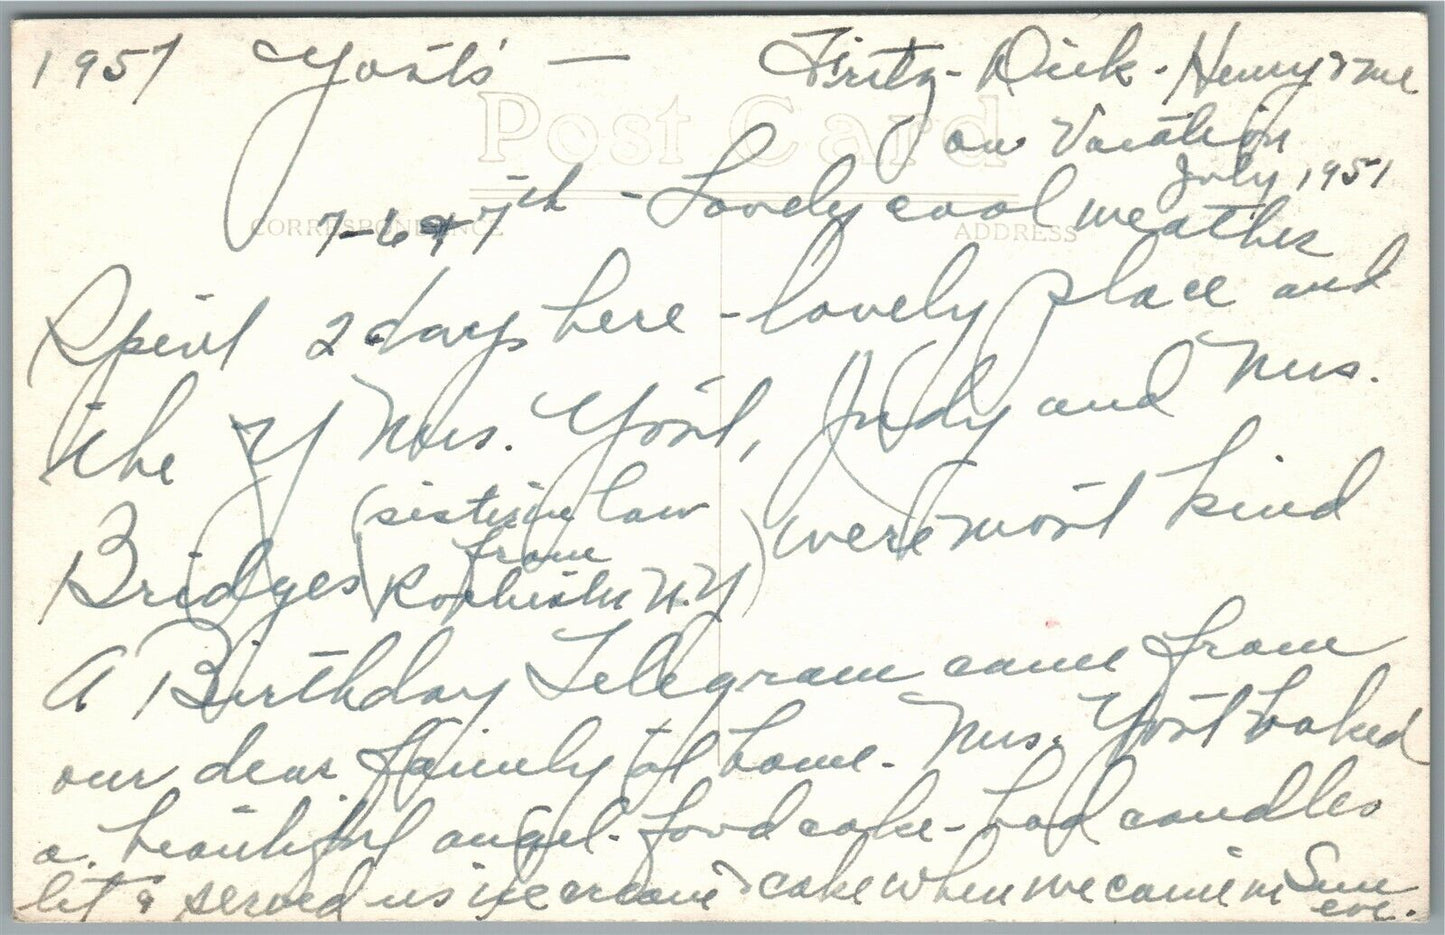 1951 Yost's — Fritz - Dick - Henry & me
Post Card
on Vacation
July 1951
CORRESPONDENCE
ADDRESS
7-6 & 7th - Lovely cool weather
Spent 2 days here - lovely place and
the Mrs. Yost, Judy and Mrs.
Bridges (sister in law from Rochester N.Y) were most kind
A Birthday Telegram came from
our dear family at home. Mrs. Yost baked
a beautiful angel-food cake - had candles
lit & served us ice cream & cake when we came in Sun
eve.